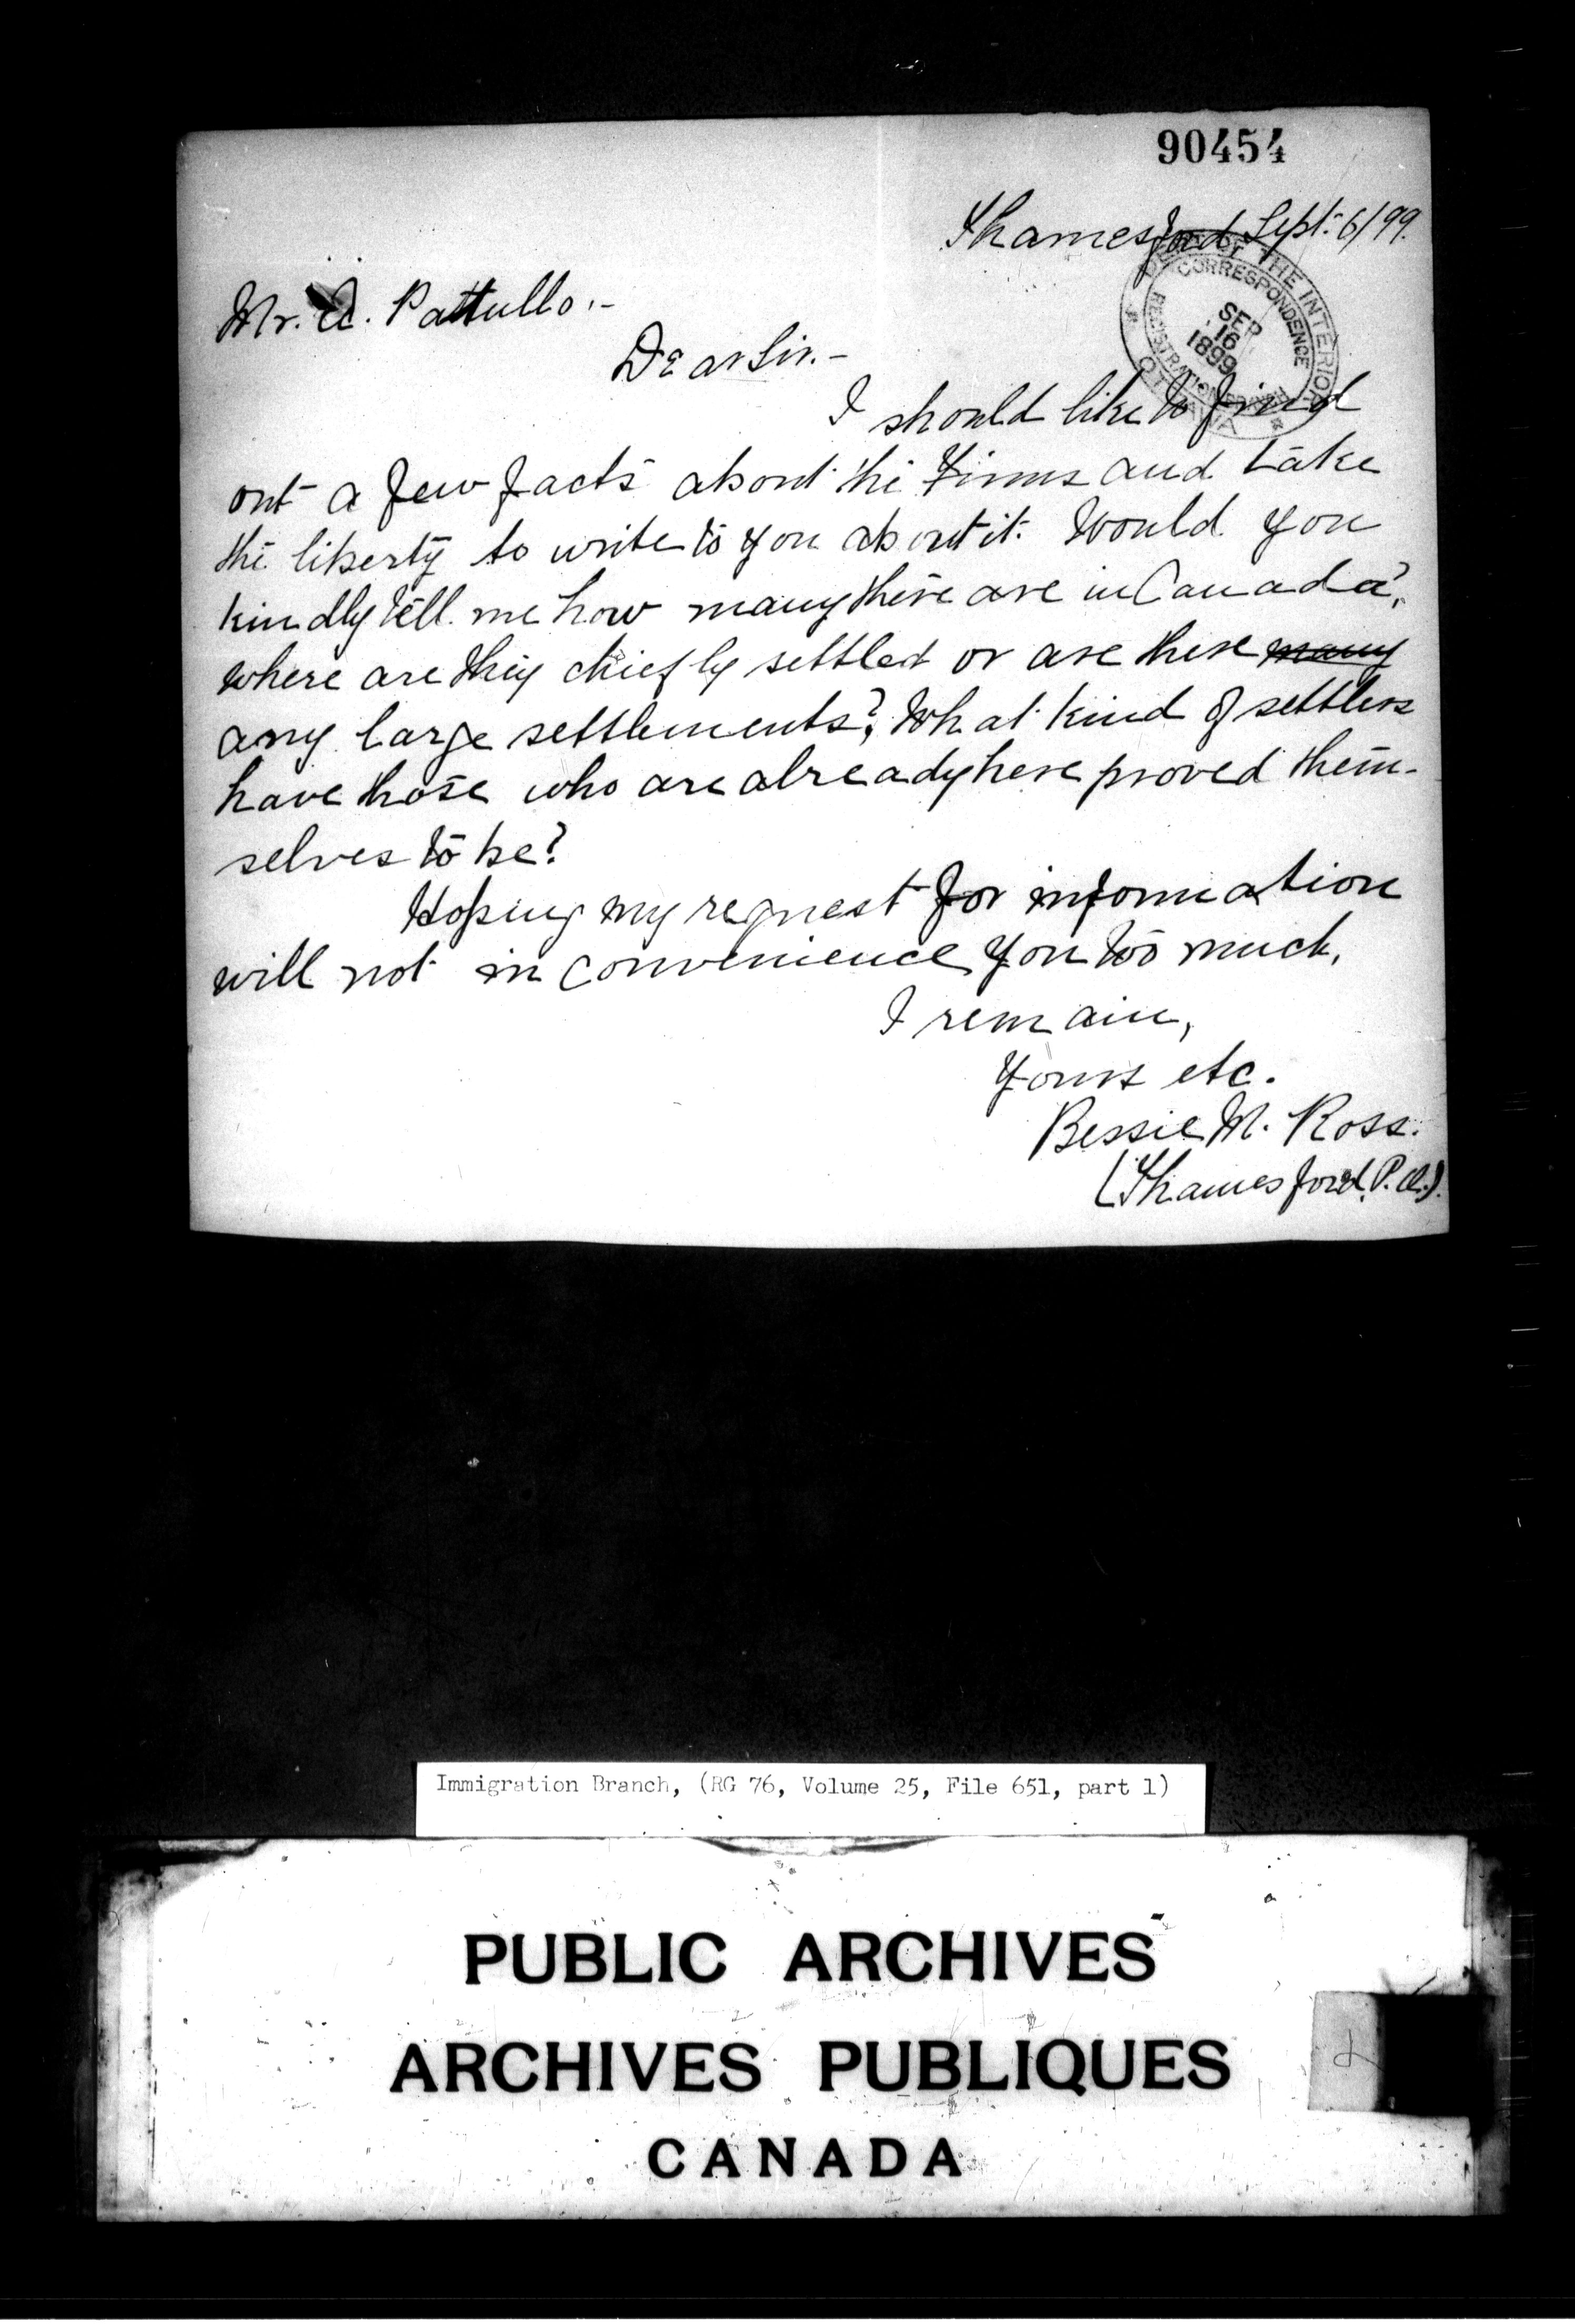 90454
Thamesford, Sept. 6/99.
DEPT OF THE INTERIOR
CORRESPONDENCE
SEP
16
1899
REGISTRATION
OTTAWA
Mr. A. Pattullo.-
Dear Sir.-
I should like to find
out a few facts about the Finns and take
the liberty to write to you about it. Would you
kindly tell me how many there are in Canada?,
where are they chiefly settled or are there many
any large settlements?, What kind of settlers
have those who are already here proved them-
selves to be?
Hoping my request for information
will not inconvenience you too much,
I remain,
Yours etc.
Bessie M. Ross.
(Thamesford, P.O.).
Immigration Branch, (RG 76, Volume 25, File 651, part 1)
PUBLIC ARCHIVES
ARCHIVES PUBLIQUES
CANADA